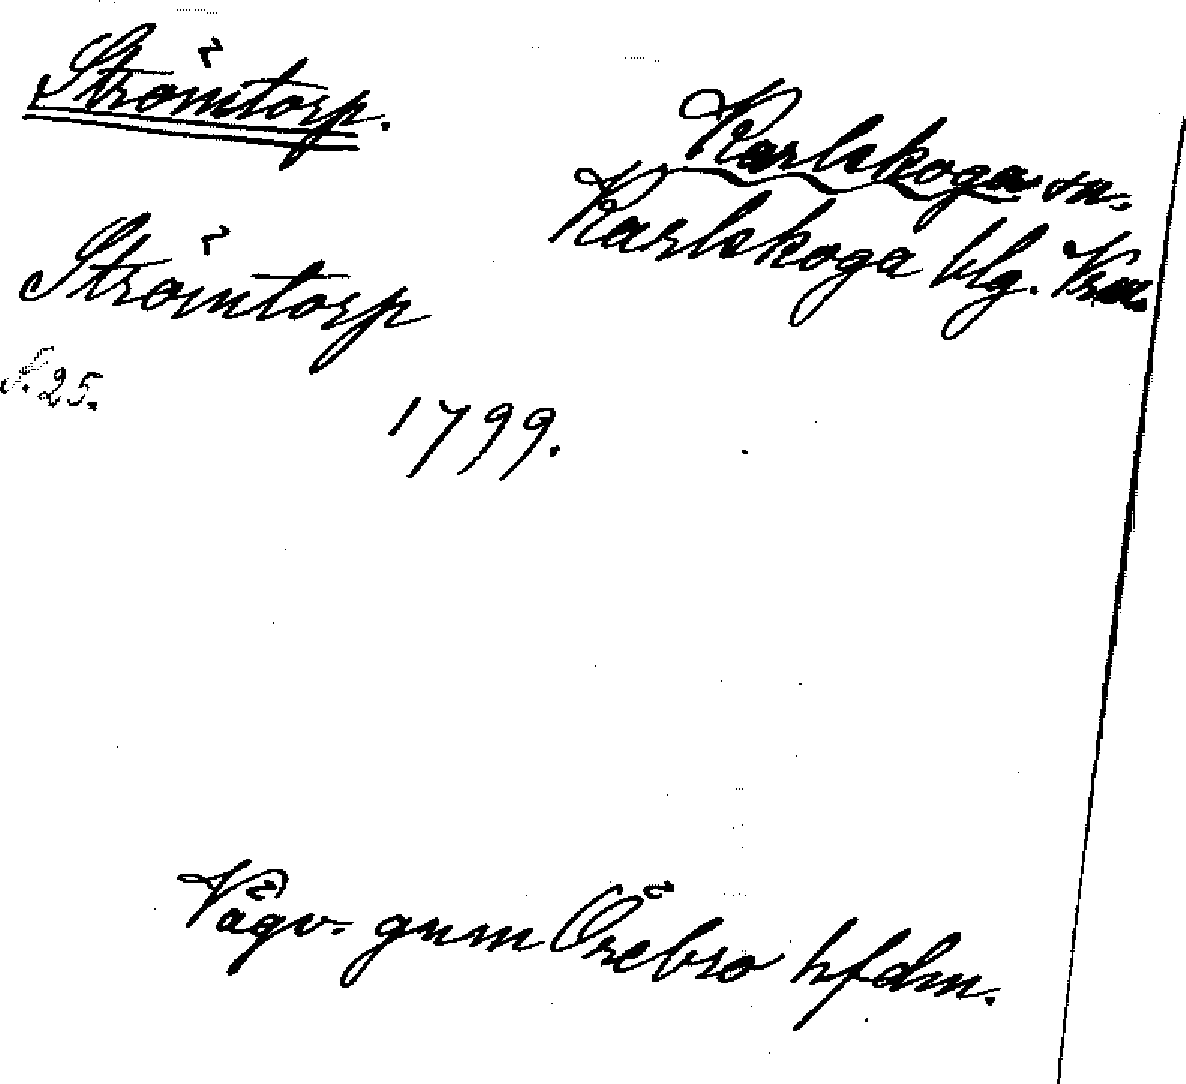 Strömtorp.
Karlskoga sn.
Karlskoga blg.
Strömtorp
S. 25.
1799.
Vägv. gnm Örebro hfdm.